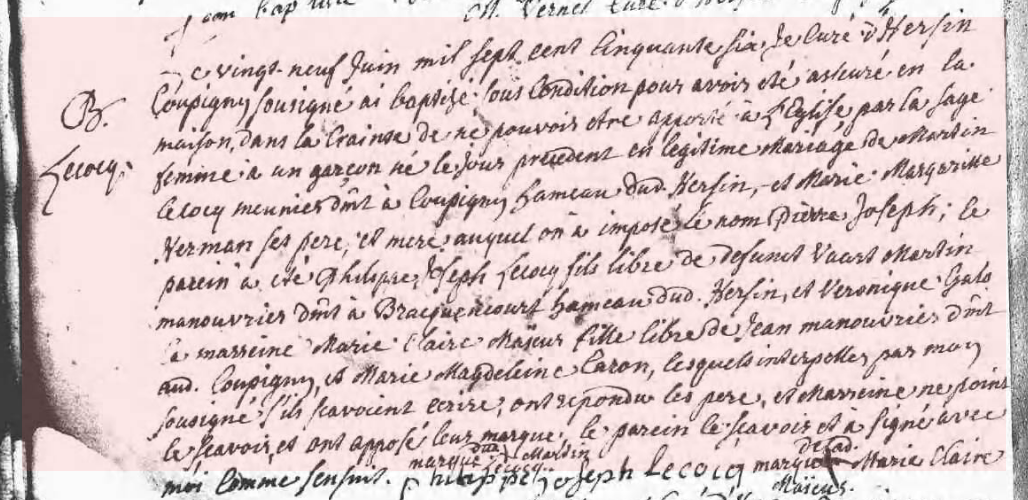 B.
Lecocq.
Ce vingt-neuf Juin mil sept cent Cinquante six, Je Curé d'Hersin
Coupigny sousigné ai baptisé sous Condition pour avoir été asseuré en la
maison, dans la Crainte de ne pouvoir etre apporté a L'Eglise par la sage
femme a un garçon né le Jour precedent en legitime Mariage de Martin
lecocq meunier dmt à Coupigny hameau dud. Hersin, et Marie Margueritte
Herman ses pere, et mere auquel on a imposé le nom Pierre Joseph; le
parein a été Philippe Joseph Lecocq fils libre de defunct Vaast Martin
manouvrier dmt à Bracquencourt hameau dud. Hersin, et Veronique
la marreine Marie Claire Majeur fille libre de Jean manouvrier dmt
aud. Coupigny, et Marie Magdeleine Caron, lesquels interpellez par moy
sousigné s'ils scavoient ecrire, ont repondu les pere, et Marreine ne point
le scavoir, et ont apposé leur marque, le parein le scavoir et a signé avec
moi Comme s'ensuit. marque dud. Martin Lecocq. Philippe Joseph Lecocq marque de lad. Marie Claire
Majeur.